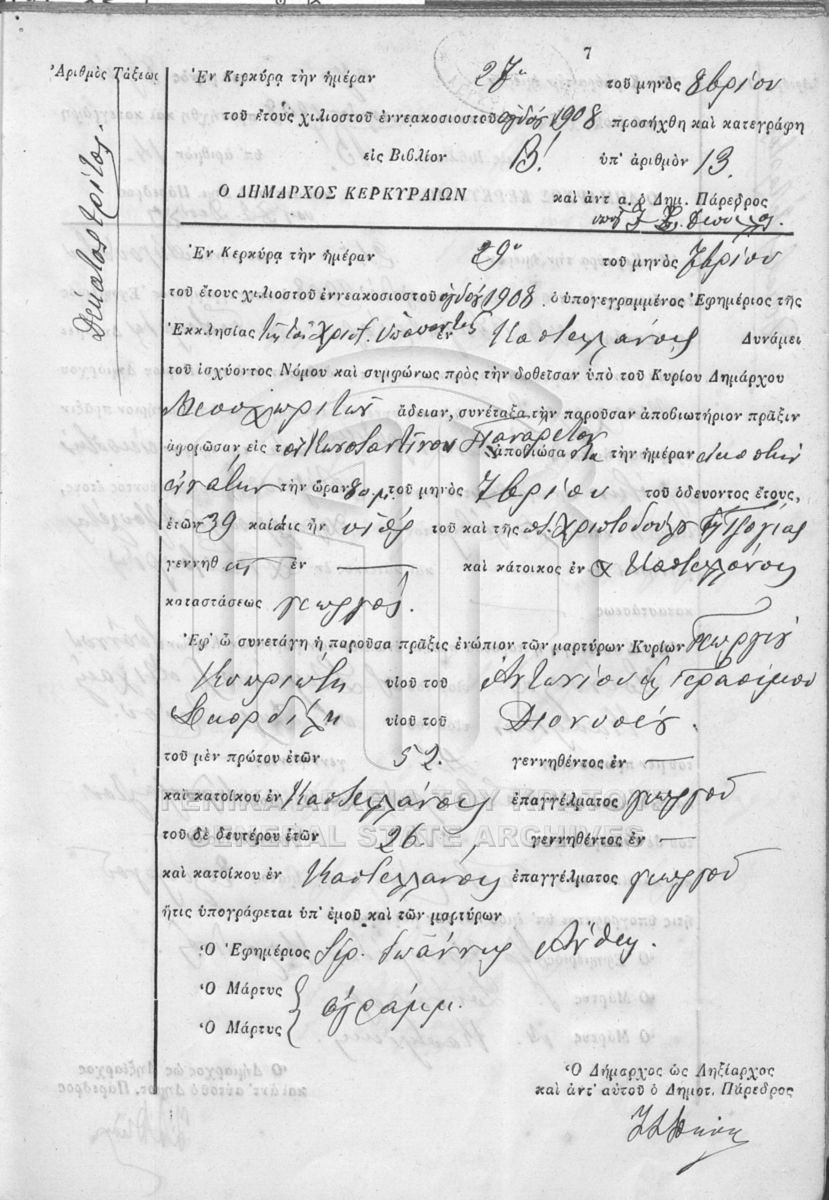 7
Ἀριθμὸς Τάξεως
Δέκατος τρίτος.
Ἐν Κερκύρᾳ τὴν ἡμέραν 27ην τοῦ μηνὸς 8βρίου
τοῦ ἔτους χιλιοστοῦ ἐννεακοσιοστοῦ ὀγδόου 1908 προσήχθη καὶ κατεγράφη
εἰς Βιβλίον Β! ὑπ' ἀριθμὸν 13.
Ο ΔΗΜΑΡΧΟΣ ΚΕΡΚΥΡΑΙΩΝ καὶ ἀντ α. ὁ Δημ. Πάρεδρος
Ἐν Κερκύρᾳ τὴν ἡμέραν 29ην τοῦ μηνὸς 7βρίου
τοῦ ἔτους χιλιοστοῦ ἐννεακοσιοστοῦ ὀγδόου 1908 ὁ ὑπογεγραμμένος Ἐφημέριος τῆς
Ἐκκλησίας τῆς τοῦ Χριστ. Ὑπαπαντῆς ἐν Καστελλάνοις Δυνάμει
τοῦ ἰσχύοντος Νόμου καὶ συμφώνως πρὸς τὴν δοθεῖσαν ὑπὸ τοῦ Κυρίου Δημάρχου
Μεσοχωριτῶν ἄδειαν, συνέταξα τὴν παροῦσαν ἀποβιωτήριον πρᾶξιν
ἀφορῶσαν εἰς τὸν Κωνσταντῖνον Παναρέτον ἀποβιώσαντα τὴν ἡμέραν εἰκοστὴν
ἐνάτην τὴν ὥραν 8 π.μ. τοῦ μηνὸς 7βρίου τοῦ ὁδεύοντος ἔτους,
ἐτῶν 39 καὶ ὅστις ἦν υἱὸς τοῦ καὶ τῆς Χριστοδούλου
γεννηθεὶς ἐν — καὶ κάτοικος ἐν Καστελλάνοις
καταστάσεως γεωργός.
Ἐφ' ᾧ συνετάγη ἡ παροῦσα πρᾶξις ἐνώπιον τῶν μαρτύρων Κυρίων Γεωργίου
υἱοῦ τοῦ Ἀντωνίου καὶ Γερασίμου
Σκορδίλη υἱοῦ τοῦ Διονυσίου.
τοῦ μὲν πρώτου ἐτῶν 52. γεννηθέντος ἐν —
καὶ κατοίκου ἐν Καστελλάνοις ἐπαγγέλματος γεωργοῦ
ΓΕΝΙΚΑ ΑΡΧΕΙΑ ΤΟΥ ΚΡΑΤΟΥΣ
GENERAL STATE ARCHIVES
τοῦ δὲ δευτέρου ἐτῶν 26 γεννηθέντος ἐν —
καὶ κατοίκου ἐν Καστελλάνοις ἐπαγγέλματος γεωργοῦ
ἥτις ὑπογράφεται ὑπ' ἐμοῦ καὶ τῶν μαρτύρων
Ὁ Ἐφημέριος Ἱερ. Ἰωάννης
Ὁ Μάρτυς
ἀγράμμ.
Ὁ Μάρτυς
Ὁ Δήμαρχος ὡς Ληξίαρχος
καὶ ἀντ' αὐτοῦ ὁ Δημοτ. Πάρεδρος